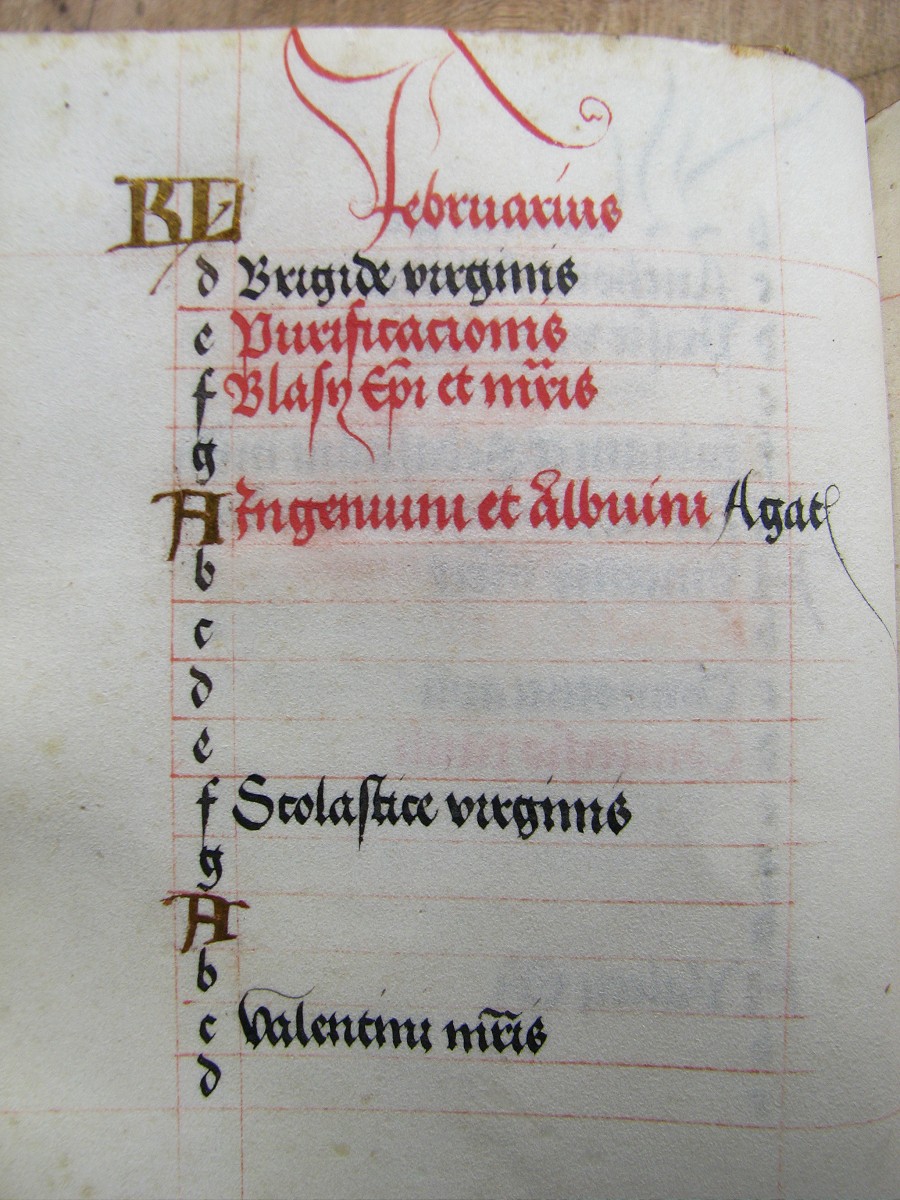 KL Februarius
d Brigide virginis
e Purificacionis
f Blasÿ Ep̄i et mr̄is
g
A Ingenuini et Albuini Agath
b
c
d
e
f Scolastice virginis
g
A
b
c Valentini mr̄is
d